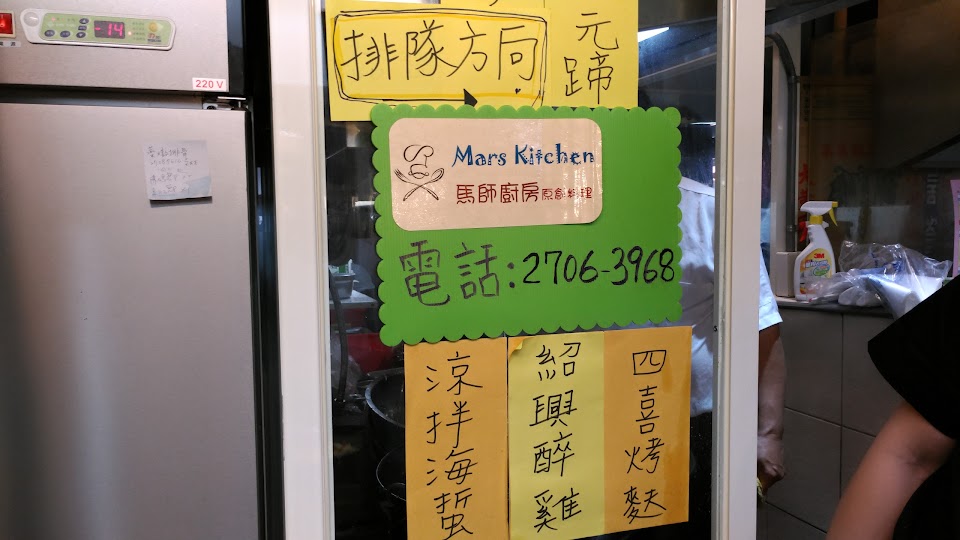 -14
220 V
排隊方向
元蹄
Mars Kitchen
馬師廚房 原創料理
電話:2706-3968
四喜烤麩
紹興醉雞
涼拌海蜇
3M